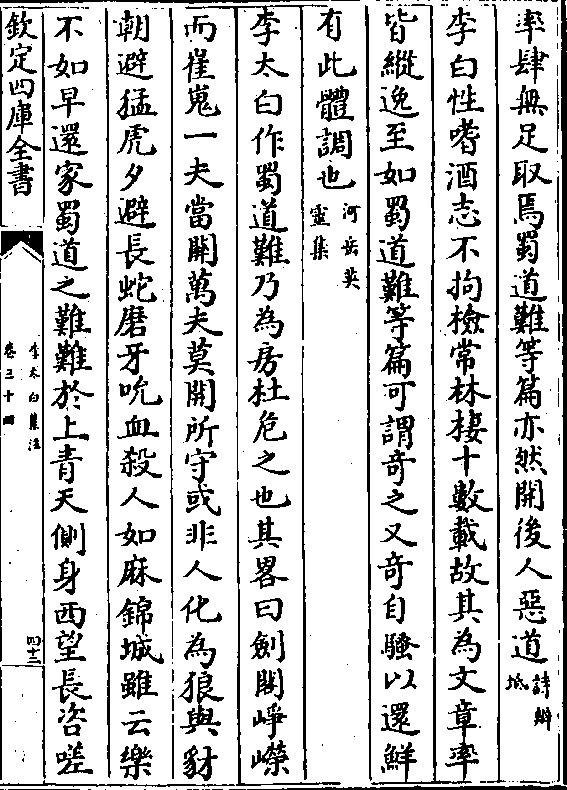 率肆無足取焉蜀道難等篇亦然開後人惡道詩辯坻
李白性嗜酒志不拘檢常林棲十數載故其為文章率
皆縱逸至如蜀道難等篇可謂竒之又竒自騷以還鮮
有此體調也河岳英靈集
李太白作蜀道難乃為房杜危之也其畧曰劍閣崢嶸
而崔嵬一夫當關萬夫莫開所守或非人化為狼與豺
朝避猛虎夕避長蛇磨牙吮血殺人如麻錦城雖云樂
不如早還家蜀道之難難於上青天側身西望長咨嗟
欽定四庫全書
李太白集注
卷三十四
四十三